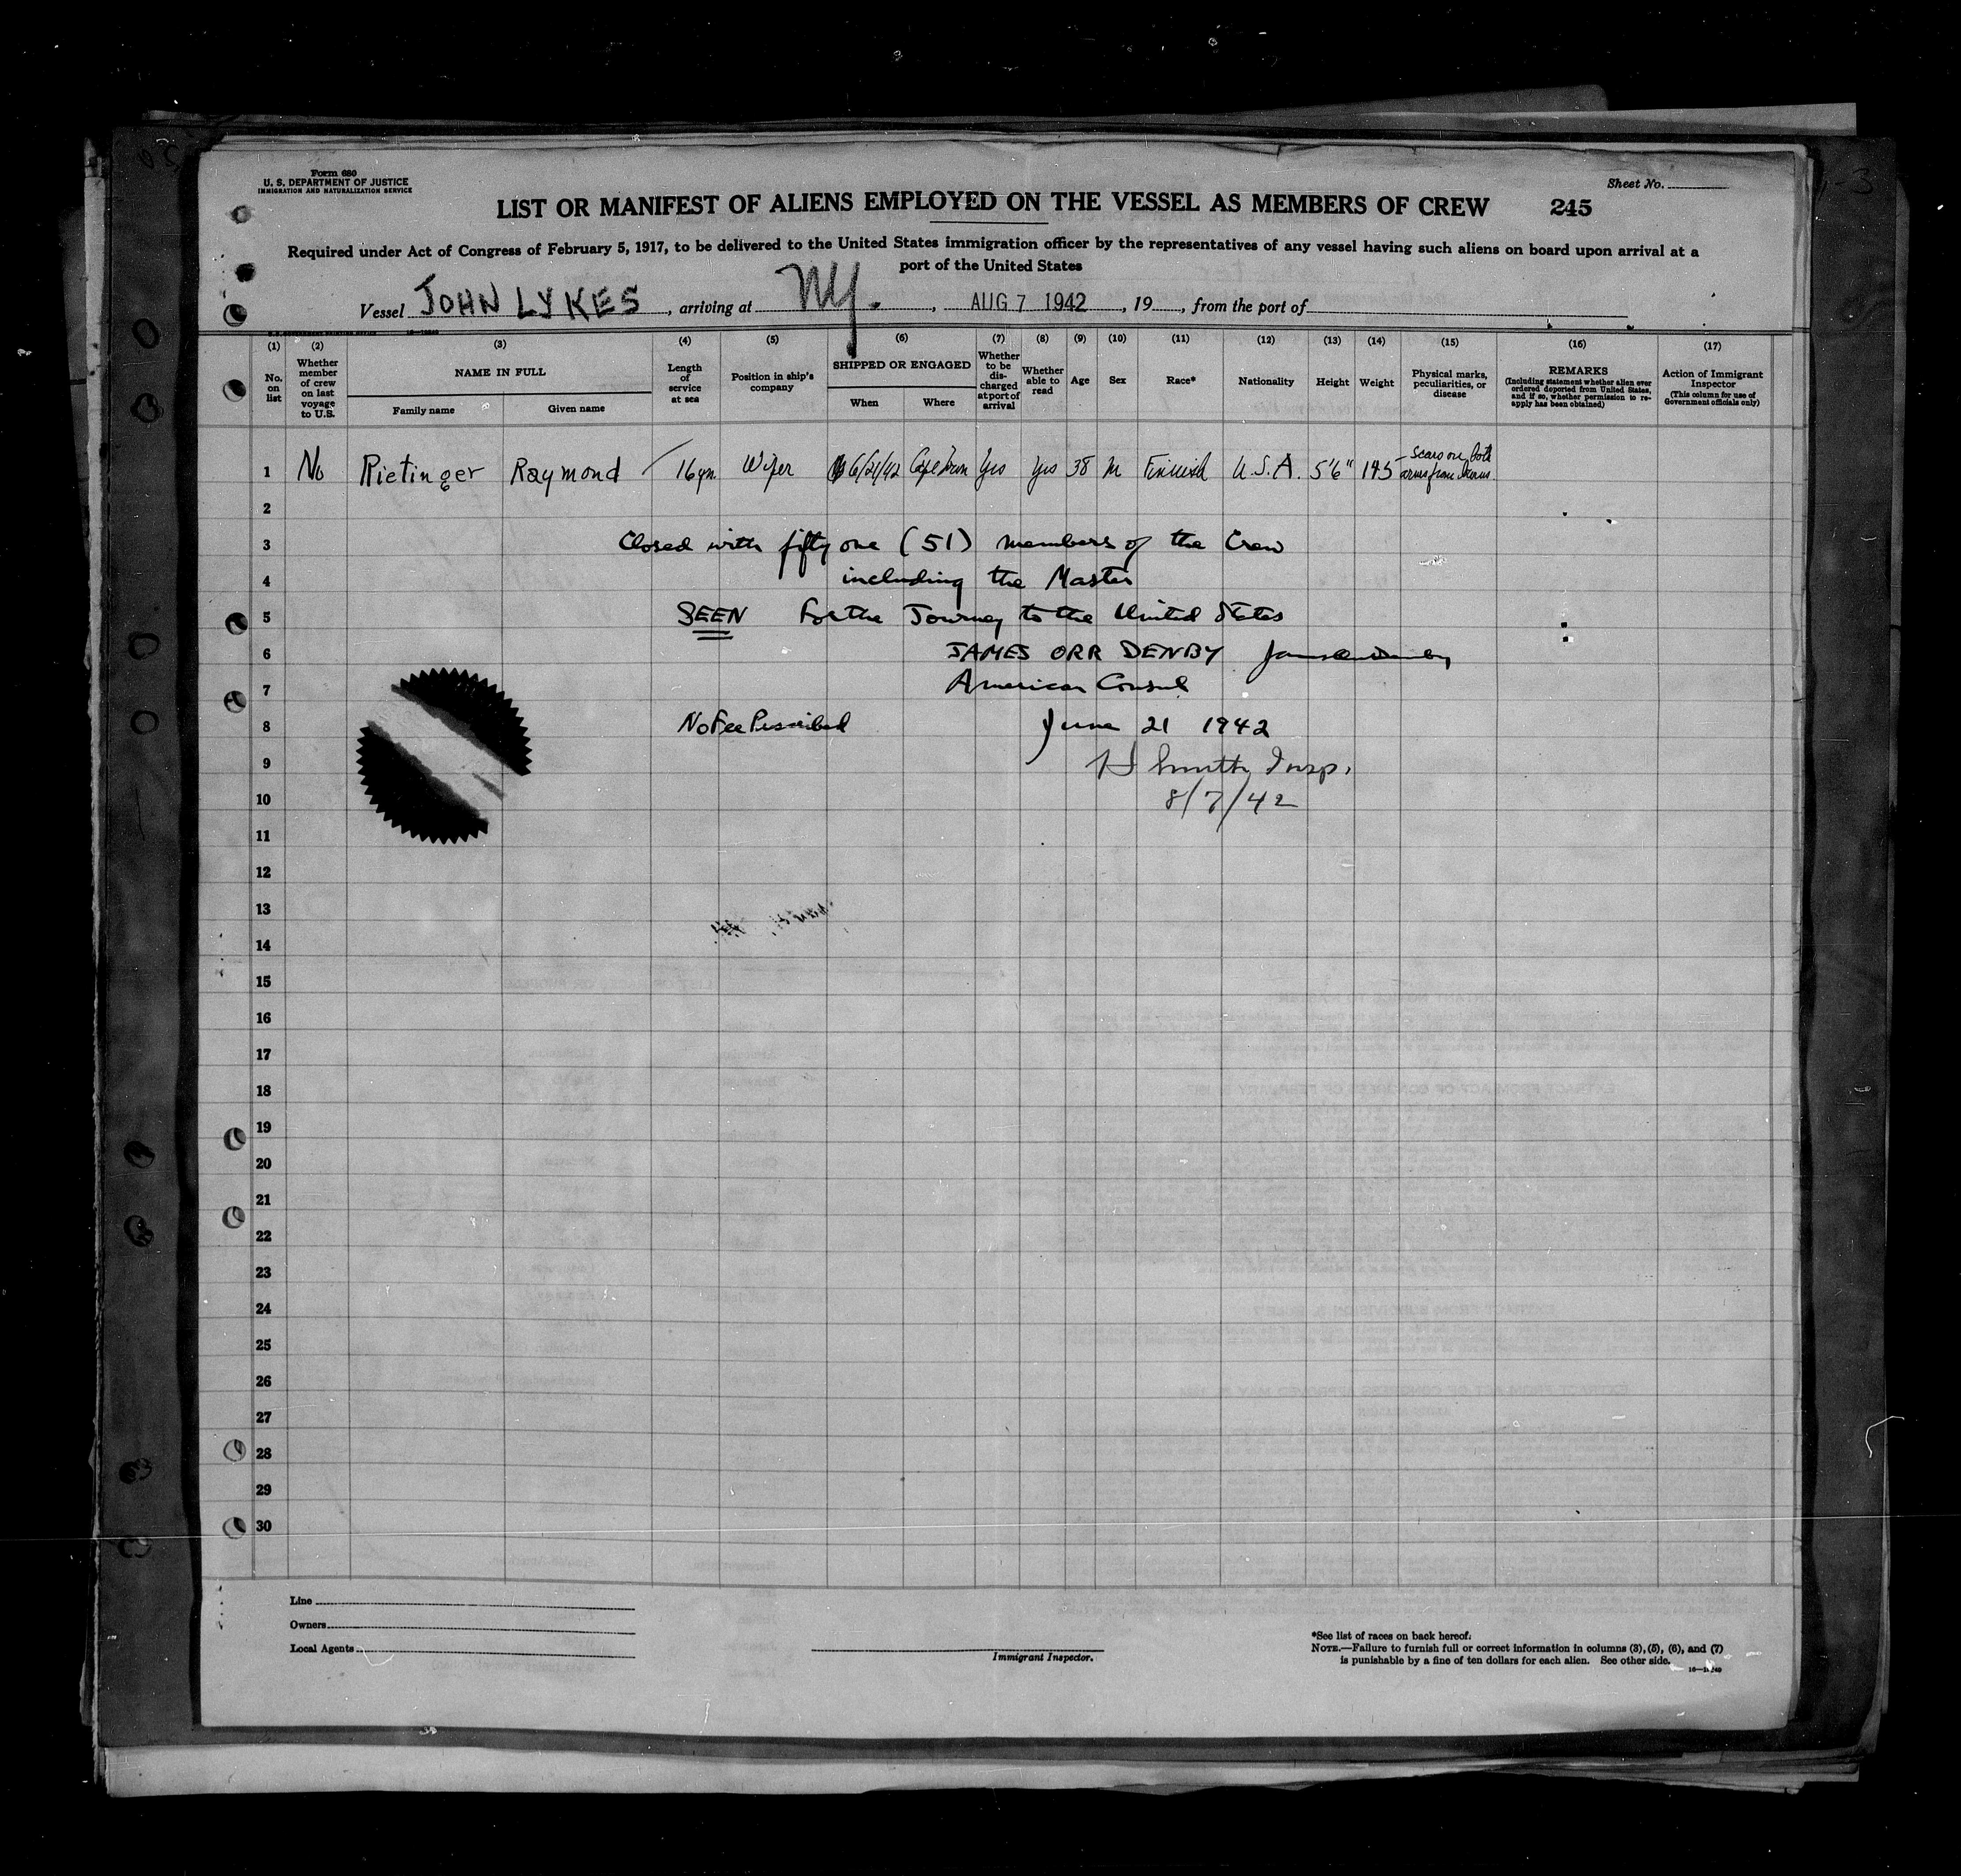 Form 680
U. S. DEPARTMENT OF JUSTICE
IMMIGRATION AND NATURALIZATION SERVICE
Sheet No.
LIST OR MANIFEST OF ALIENS EMPLOYED ON THE VESSEL AS MEMBERS OF CREW 245
Required under Act of Congress of February 5, 1917, to be delivered to the United States immigration officer by the representatives of any vessel having such aliens on board upon arrival at a
port of the United States
Vessel JOHN LYKES, arriving at NY., AUG 7 1942, 19, from the port of
(1) (2) (3) (4) (5) (6) (7) (8) (9) (10) (11) (12) (13) (14) (15) (16) (17)
No. on list
Whether member of crew on last voyage to U.S.
NAME IN FULL
Family name Given name
Length of service at sea
Position in ship's company
SHIPPED OR ENGAGED
When Where
Whether to be discharged at port of arrival
Whether able to read
Age
Sex
Race*
Nationality
Height
Weight
Physical marks, peculiarities, or disease
REMARKS
(Including statement whether alien ever ordered deported from United States, and if so, whether permission to reapply has been obtained)
Action of Immigrant Inspector
(This column for use of Government officials only)
1 No Rietinger Raymond 16 yrs Wiper 6/21/42 Cape Town Yes Yes 38 M Finnish U.S.A. 5'6" 145 scars on both arms from
2
3 Closed with fifty one (51) members of the Crew
4 including the Master
5 SEEN For the Journey to the United States
6 JAMES ORR DENBY James Orr Denby
7 American Consul
8 No Fee Prescribed June 21 1942
9 Smith Insp.
10 8/7/42
11
12
13
14
15
16
17
18
19
20
21
22
23
24
25
26
27
28
29
30
Line
Owners
Local Agents
Immigrant Inspector.
*See list of races on back hereof.
NOTE.—Failure to furnish full or correct information in columns (3), (5), (6), and (7)
is punishable by a fine of ten dollars for each alien. See other side.